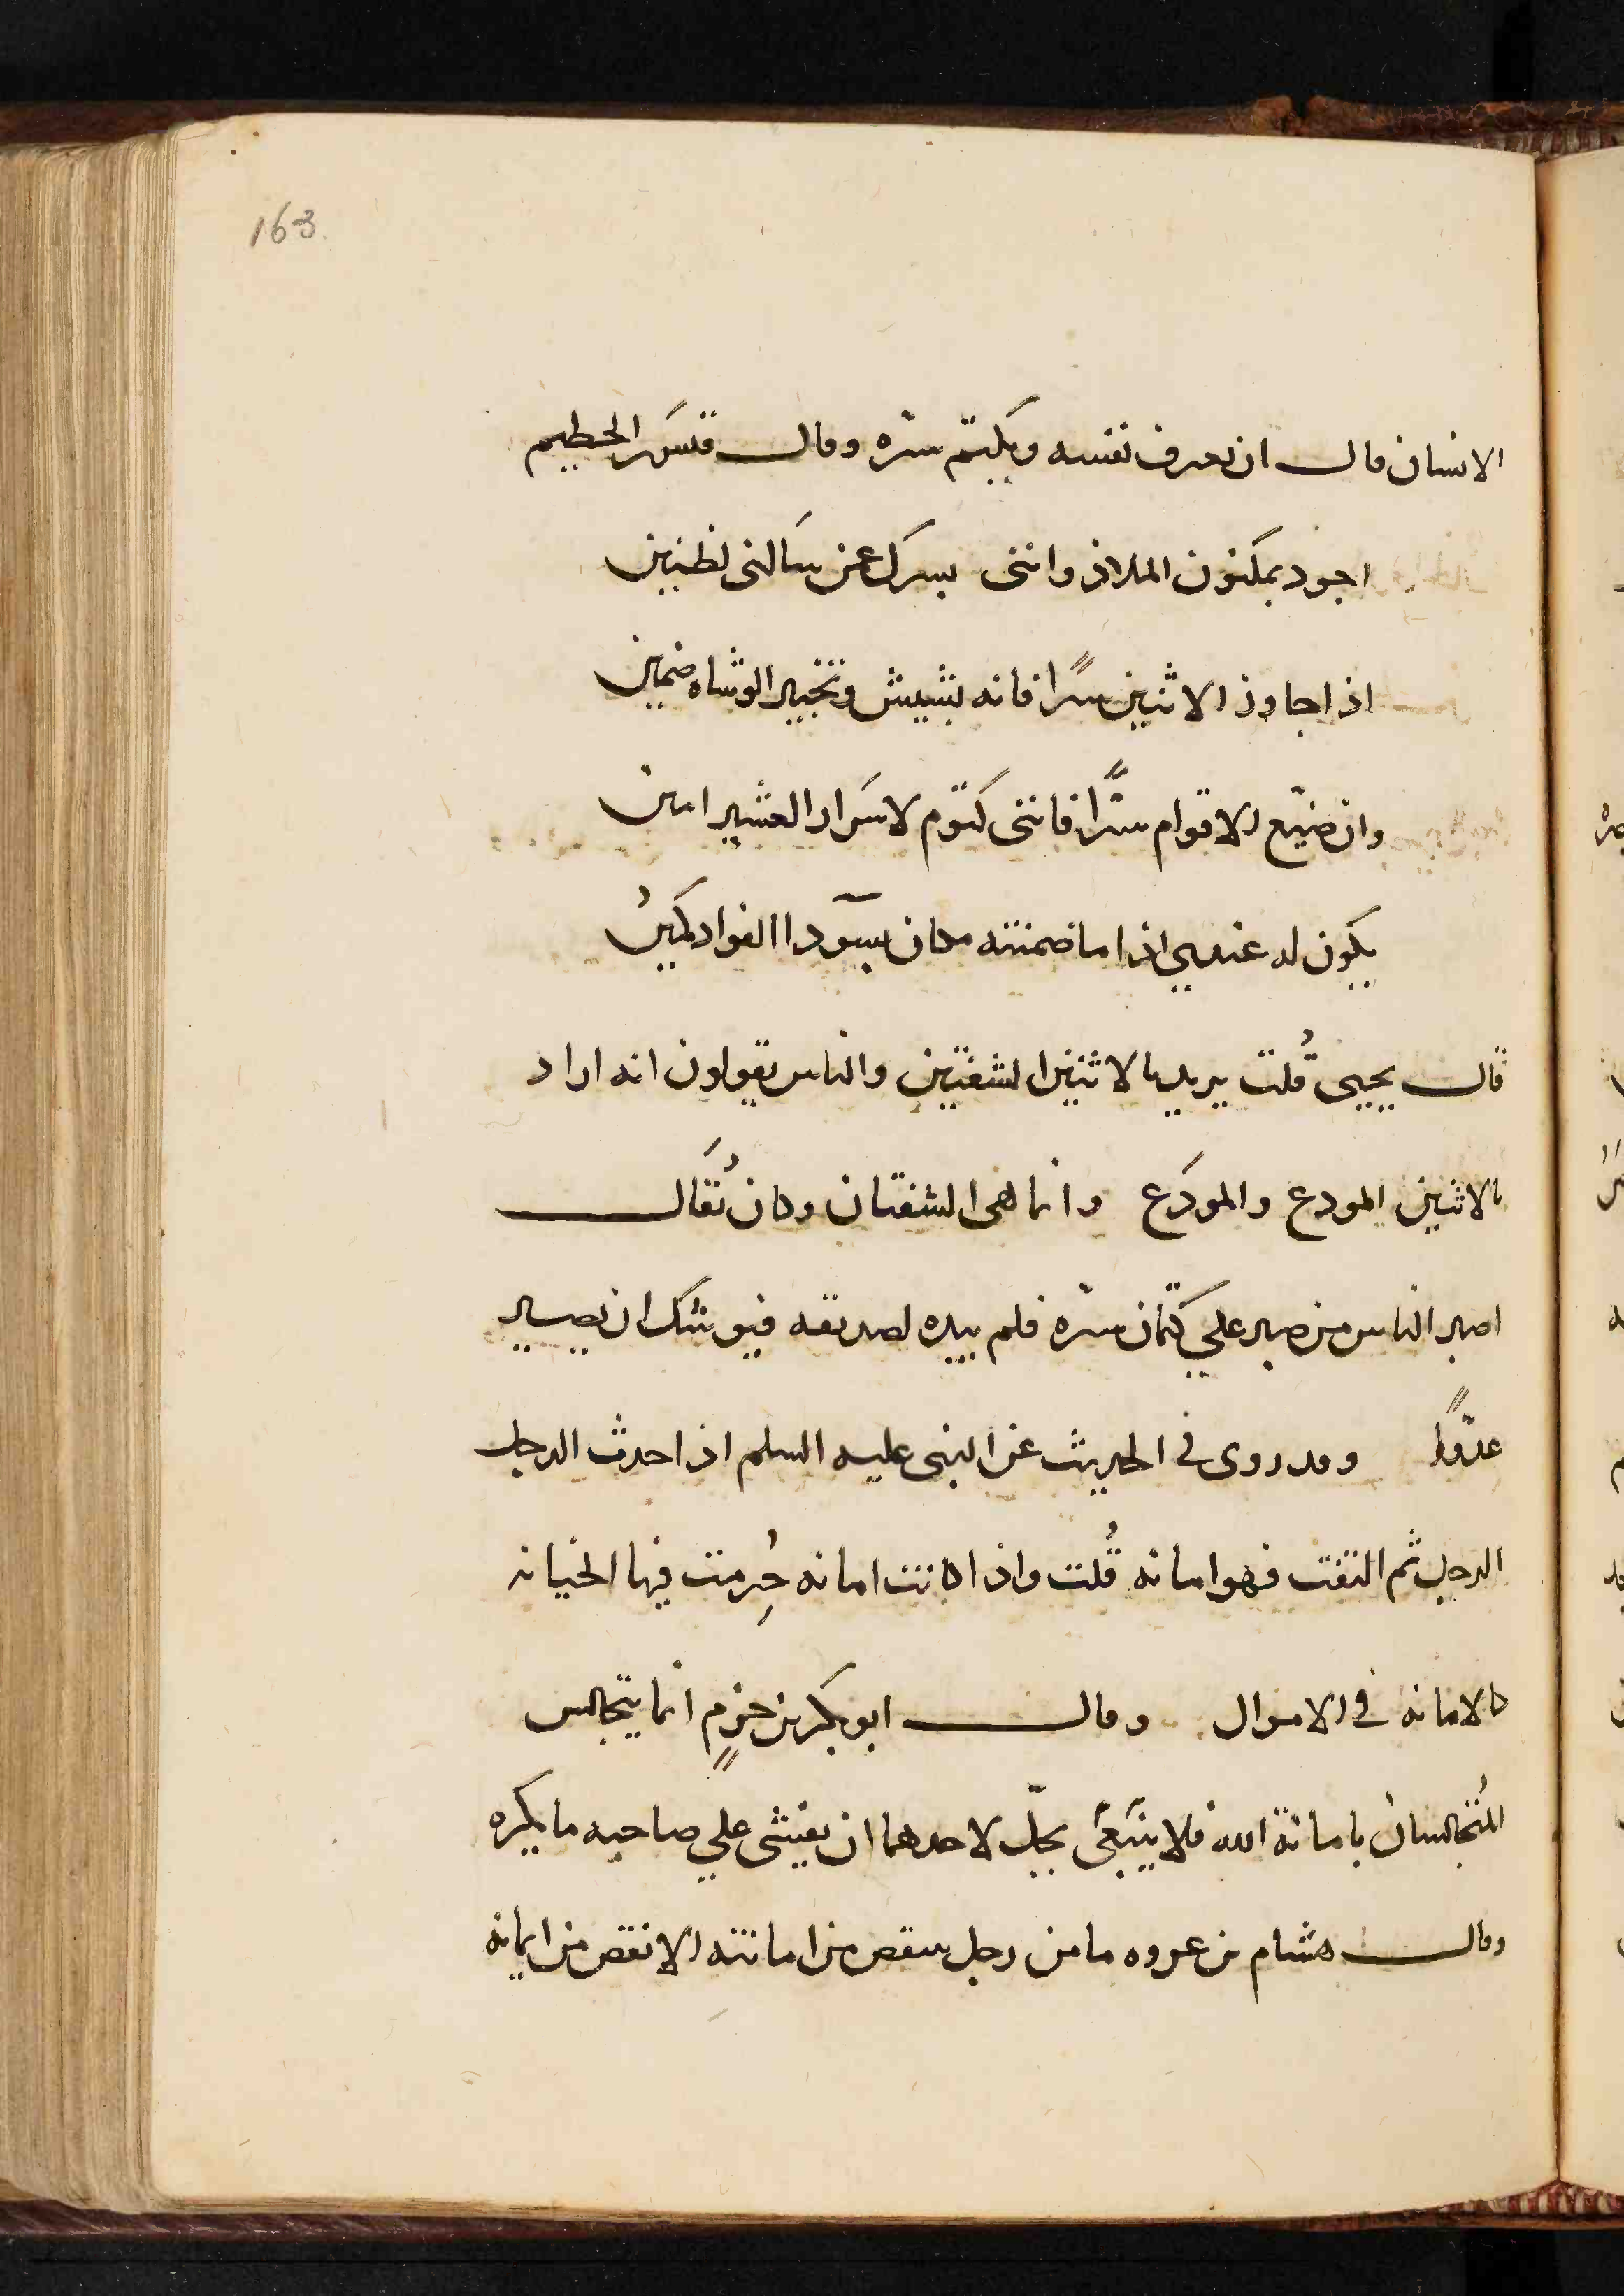 163.
الانسان قال ان يعرف نفسه ويكتم سره وقال قيس بن الخطيم
اجود بمكنون الملاذ وانني بسرك عن سالني لظنين
اذا جاوز الاثنين سرا فانه بنثيث وتخبير الوشاه ضمين
وان ضيّع الاقوام سرًّا فانني كتوم لاسرار العشير امين
يكون له عندي اذا ما ضمنته مكان بسودا الفواد كمينُ
قال يحيى قُلت يريد بالاثنين الشفتين والناس يقولون انه اراد
بالاثنين المودع والمودَع وانما هي الشفتان وكان يُقَال
اصبر الناس من صبر علي كتمان سره فلم يبده لصديقه فيوشك ان يصير
عدّوًا وقد روى في الحديث عن النبى عليه السلم اذا حدث الرجل
الرجل ثم التفت فهو امانه قُلت واذا كانت امانه حُرِمت فيها الخيانه
كالامانه في الاموال وقال ابو بكر بن حزمٍ انما يتجالس
المُتجالسان بامانة الله فلا يحلّ لاحدهما ان يفشى علي صاحبه ما يكره
وقال هشام بن عروه ما من رجل ينقص من امانته الا نقص من ايمانه